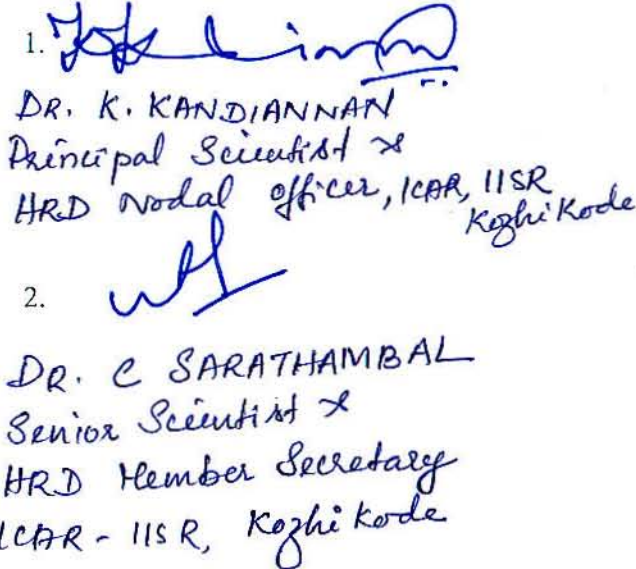 1.
DR. K. KANDIANNAN
Principal Scientist &
HRD Nodal Officer, ICAR, IISR
Kozhikode
2.
DR. C SARATHAMBAL
Senior Scientist &
HRD Member Secretary
ICAR - IISR, Kozhikode